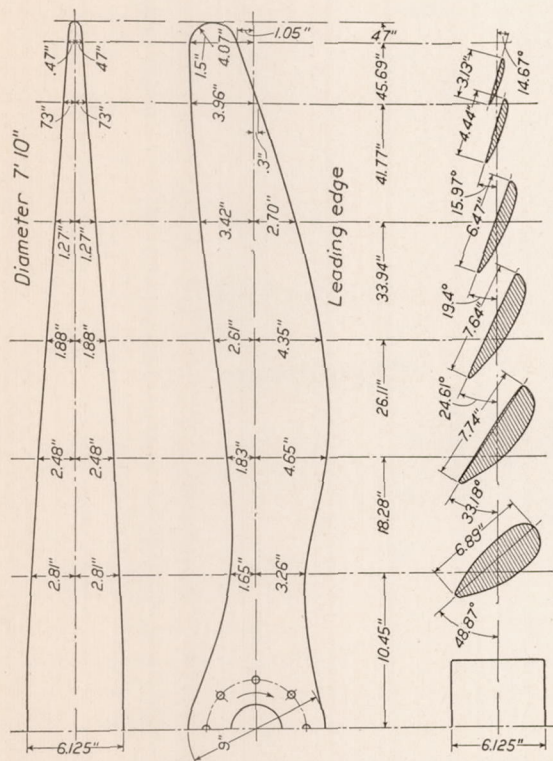 Diameter 7' 10"
.47"
.47"
.73"
.73"
1.27"
1.27"
1.88"
1.88"
2.48"
2.48"
2.81"
2.81"
6.125"
1.05"
1.5"
4.07"
3.96"
.3"
3.42"
2.70"
2.61"
4.35"
1.83"
4.65"
1.65"
3.26"
9"
Leading edge
47"
45.69"
41.77"
33.94"
26.11"
18.28"
10.45"
3.13"
14.67°
4.44"
15.97°
6.47"
19.4°
7.64"
24.61°
7.74"
33.18°
6.89"
48.87°
6.125"